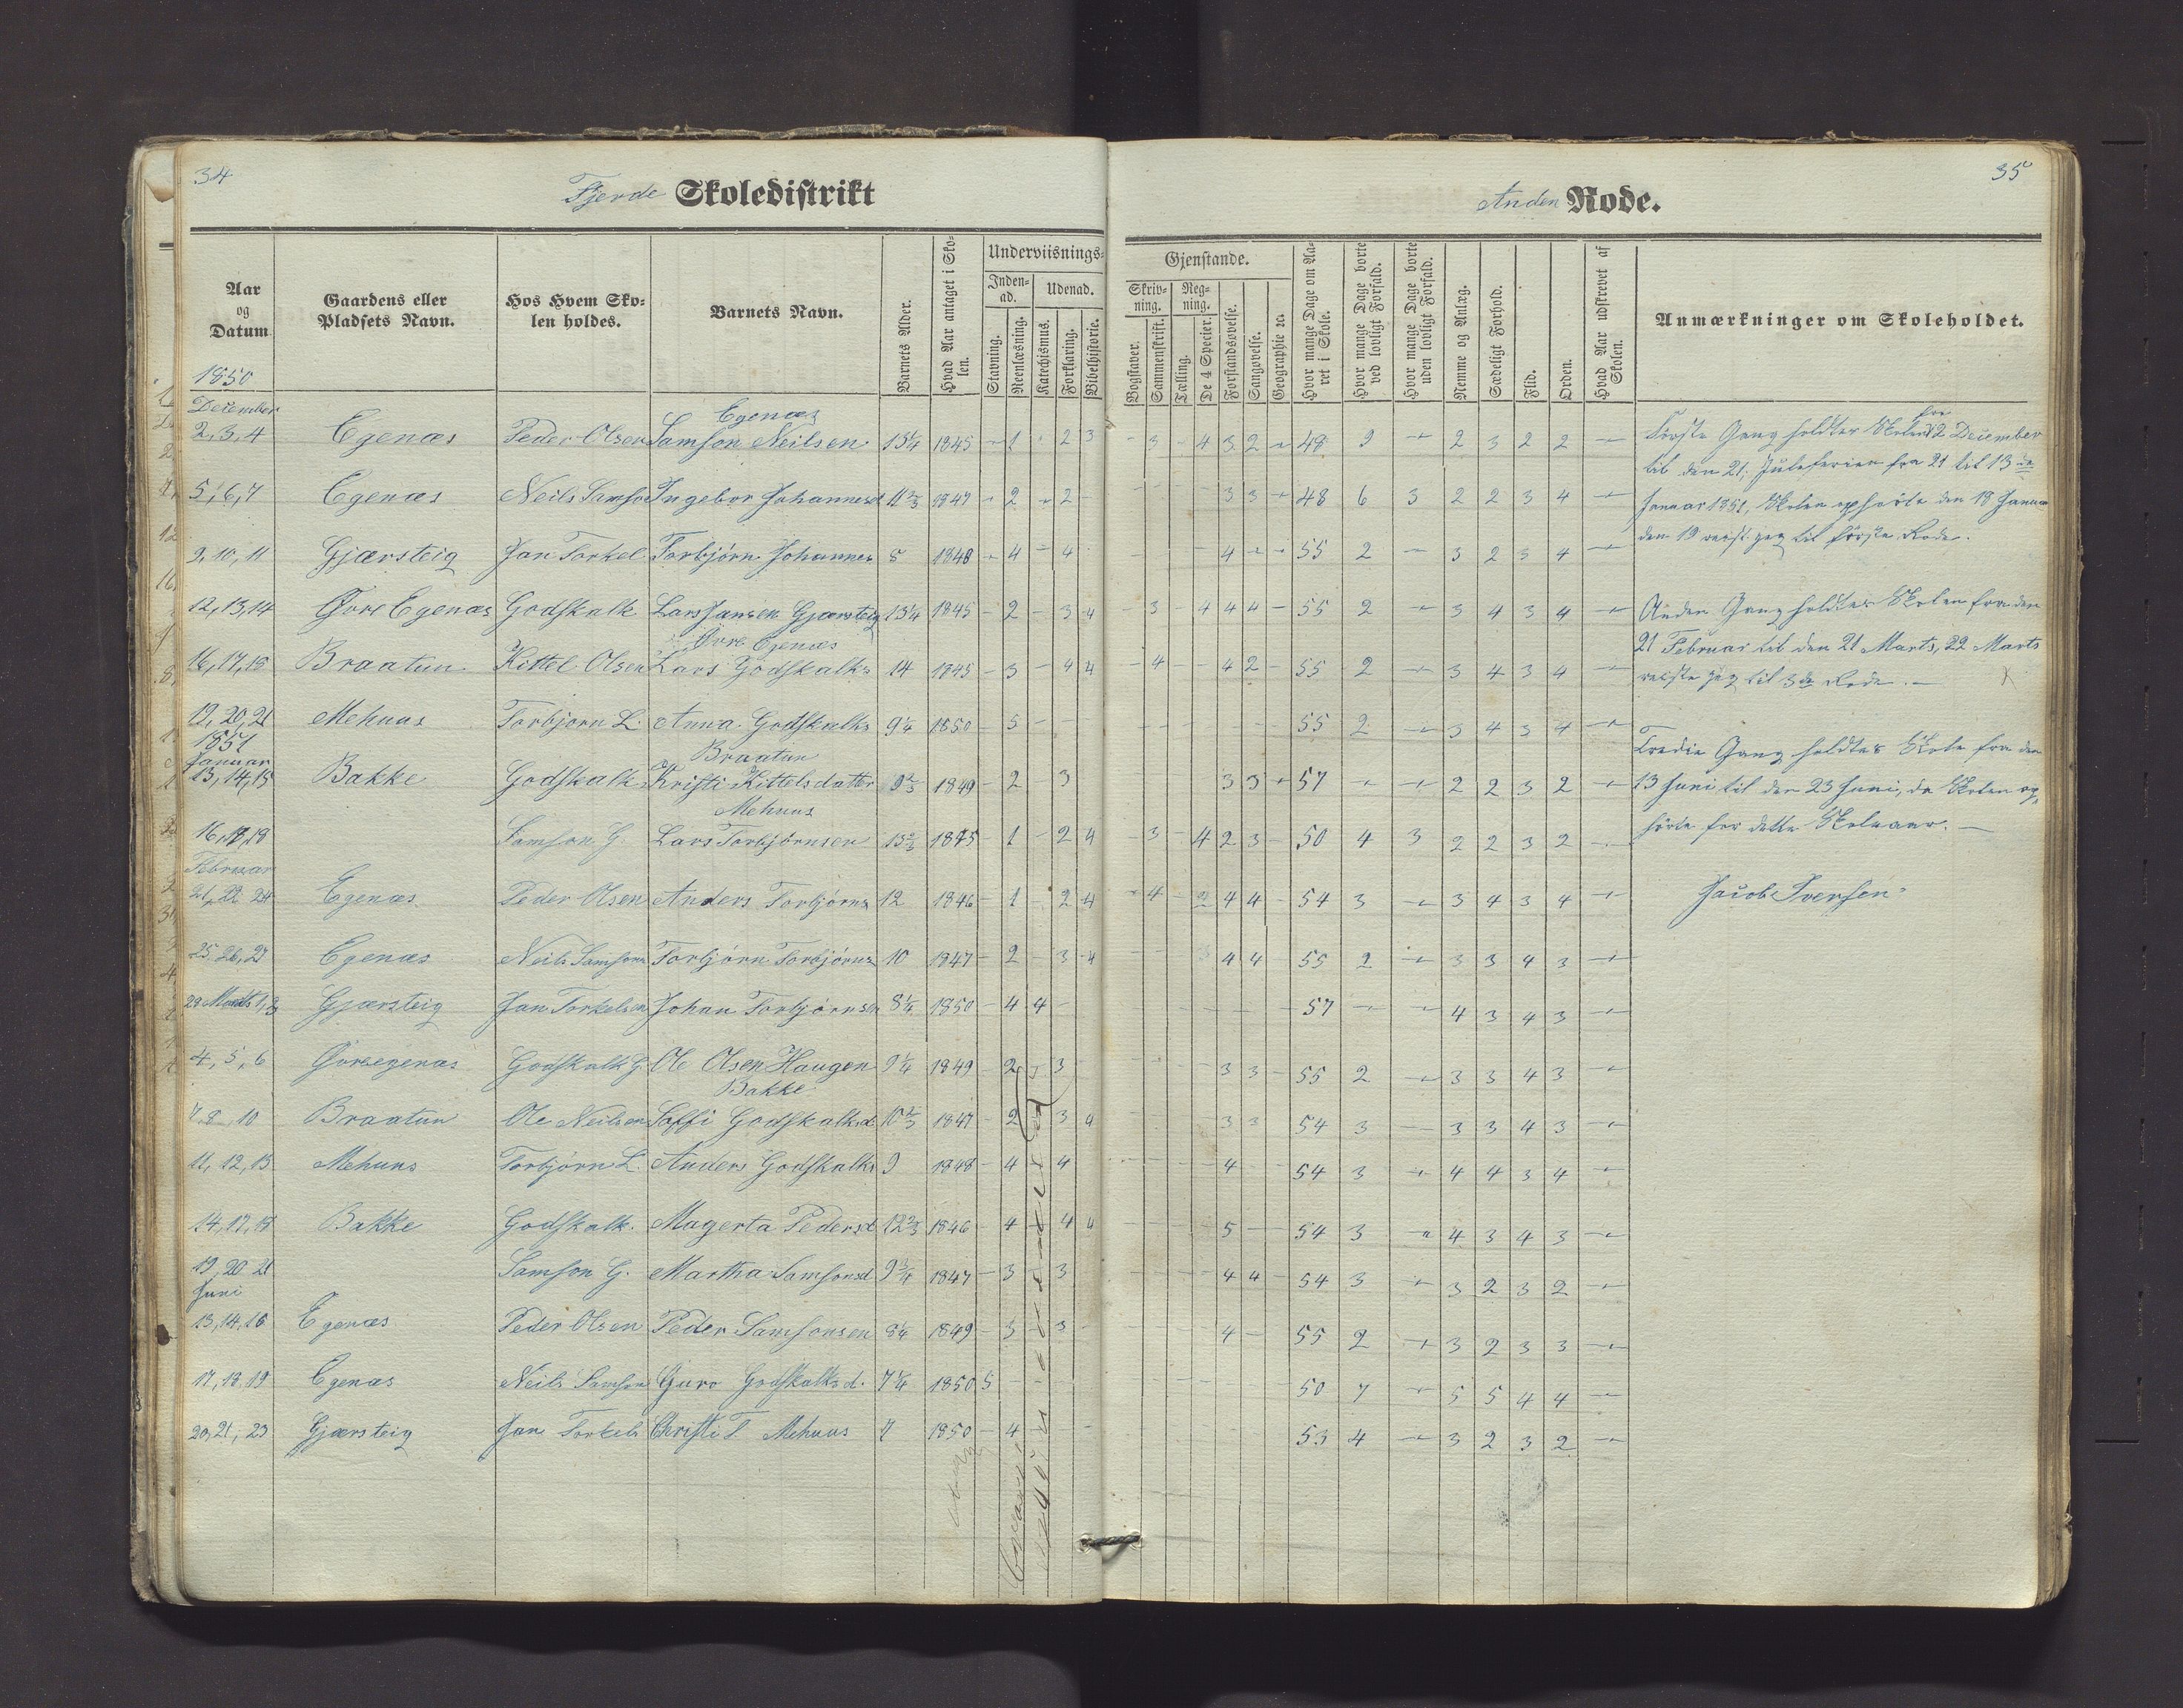 34
Fjerde Skoledistrikt
Aar og Datum
Gaardens eller Pladsets Navn.
Hos Hvem Skolen holdes.
Barnets Navn.
Barnets Alder.
Hvad Aar antaget i Skolen.
Underviisnings-
Inden-ad.
Udenad.
Stavning.
Reenlæsning.
Katechismus.
Forklaring.
Bibelhistorie.
1850
December
Egenæs
2, 3, 4 Egenæs Peder Olsen Samson Neilsen 13 1/4 1845 - 1 - 2 3
5, 6, 7 Egenæs Neils Samson Ingebor Johannesd 11 2/3 1847 - 2 - 2 -
9, 10, 11 Gjærsteig Jan Torkel Torbjörn Johannes 8 1848 - 4 - 4
12, 13, 14 Övre Egenæs Godskalk Lars Jansen Gjærsteig 13 1/4 1845 - 2 - 3 4
Övre Egenæs
16, 17, 18 Braatun Kittel Olsen Lars Godskalks 14 1845 - 3 - 4 4
19, 20, 21 Mehuus Torbjorn L. Anna Godskalks 9 1/4 1850 - 5 - -
1851
Januar
Braatun
13, 14, 15 Bakke Godskalk Kristi Kittelsdatter 9 2/3 1849 - 2 - 3
Mehuus
16, 17, 18 Samson G. Lars Torbjörnsen 13 2/3 1845 - 1 - 2 4
Februar
21, 22 24 Egenæs Peder Olsen Anders Torbjörns 12 1846 - 1 - 2 4
25, 26, 27 Egenæs Neils Samsons Torbjörn Torbjörns 10 1847 - 2 - 3 4
28 Marts 1, 3 Gjærsteig Jan Torkelsen Johan Torbjörnsen 8 1/4 1850 - 4 4 -
4, 5, 6 Övreegenæs Godskalk G. Ole Olsen Haugen 9 1/4 1849 - 2 3
Bakke
7, 8, 10 Braatun Ole Neilsen Saffi Godskalksd 10 2/3 1847 - 2 3 4
11, 12, 13 Mehuus Torbjörn L. Anders Godskalks 9 1848 - 4 4
14, 17, 18 Bakke Godskalk. Magerta Pedersd 12 2/3 1846 - 4 4 4
19, 20 21 Samson G. Martha Samsonsd 9 3/4 1847 - 3 3
Juni
13, 14, 16 Egenæs Peder Olsen Peder Samsonsen 8 1/4 1849 - 3 - 3 -
17, 18, 19 Egenæs Neils Samson Guro Godskalksd. 7 1/4 1850 5 - -
20, 21, 23 Gjærsteig Jan Torkels Christi T Mehuus 7 1850 - 4 -
35
Anden Rode.
Gjenstande.
Skrivning.
Regning.
Bogstaver.
Sammenskrift.
Tælling.
De 4 Specier.
Forstandsøvelse.
Sangøvelse.
Geographie ꝛc
Hvor mange Dage om Aaret i Skole.
Hvor mange Dage borte ved lovligt Forfald.
Hvor mange Dage borte uden lovligt Forfald.
Nemme og Anlæg.
Sædeligt Forhold.
Flid.
Orden.
Hvad Aar udskrevet af Skolen.
Anmærkninger om Skoleholdet.
- 3 - 4 3 2 - 48 9 - 2 3 2 2 -
- - - - 3 3 - 48 6 3 2 2 3 4 -
- - - - 4 - - 55 2 - 3 2 3 4 -
- 3 - 4 4 4 - 55 2 - 3 4 3 4 -
- 4 - 4 2 - 55 2 - 3 4 3 4 -
- - - - - - 55 2 - 3 4 3 4 -
3 3 - 57 - - 2 2 3 2 -
3 - 4 2 3 - 50 4 3 2 2 3 2 -
- 4 - 2 4 4 - 54 3 - 3 4 3 4 -
- - 4 4 55 2 - 3 3 4 3 -
- - - - 57 - - 4 3 4 3 -
- - 3 3 - 55 2 - 3 3 4 3 -
- - 3 3 54 3 - 3 3 4 3 -
- - - - 4 - 54 3 - 4 4 3 4 -
- - - 5 - 54 3 - 4 3 4 3 -
- - - - 4 4 - 54 3 - 3 2 3 2 -
- - 4 - 55 2 - 3 2 3 3 -
- - - 50 7 - 5 5 4 4 -
53 4 - 3 2 3 2 -
Förste Gang holdtes Skolen fra 2 December
til den 21, Juleferien fra 21 til 13de
Januar 1851, Skolen ophörte den 18 Januar
den 19 reiste jeg til förste Rode.
Anden Gang holdtes Skolen fra den
21 Februar til den 21 Marts, 22 Marts
reiste jeg til 3die Rode. -
Tredie Gang holdtes Skole fra den
13 Juni til den 23 Juni, da Skolen op-
hörte for dette Skoleaar. -
Jacob Iversen